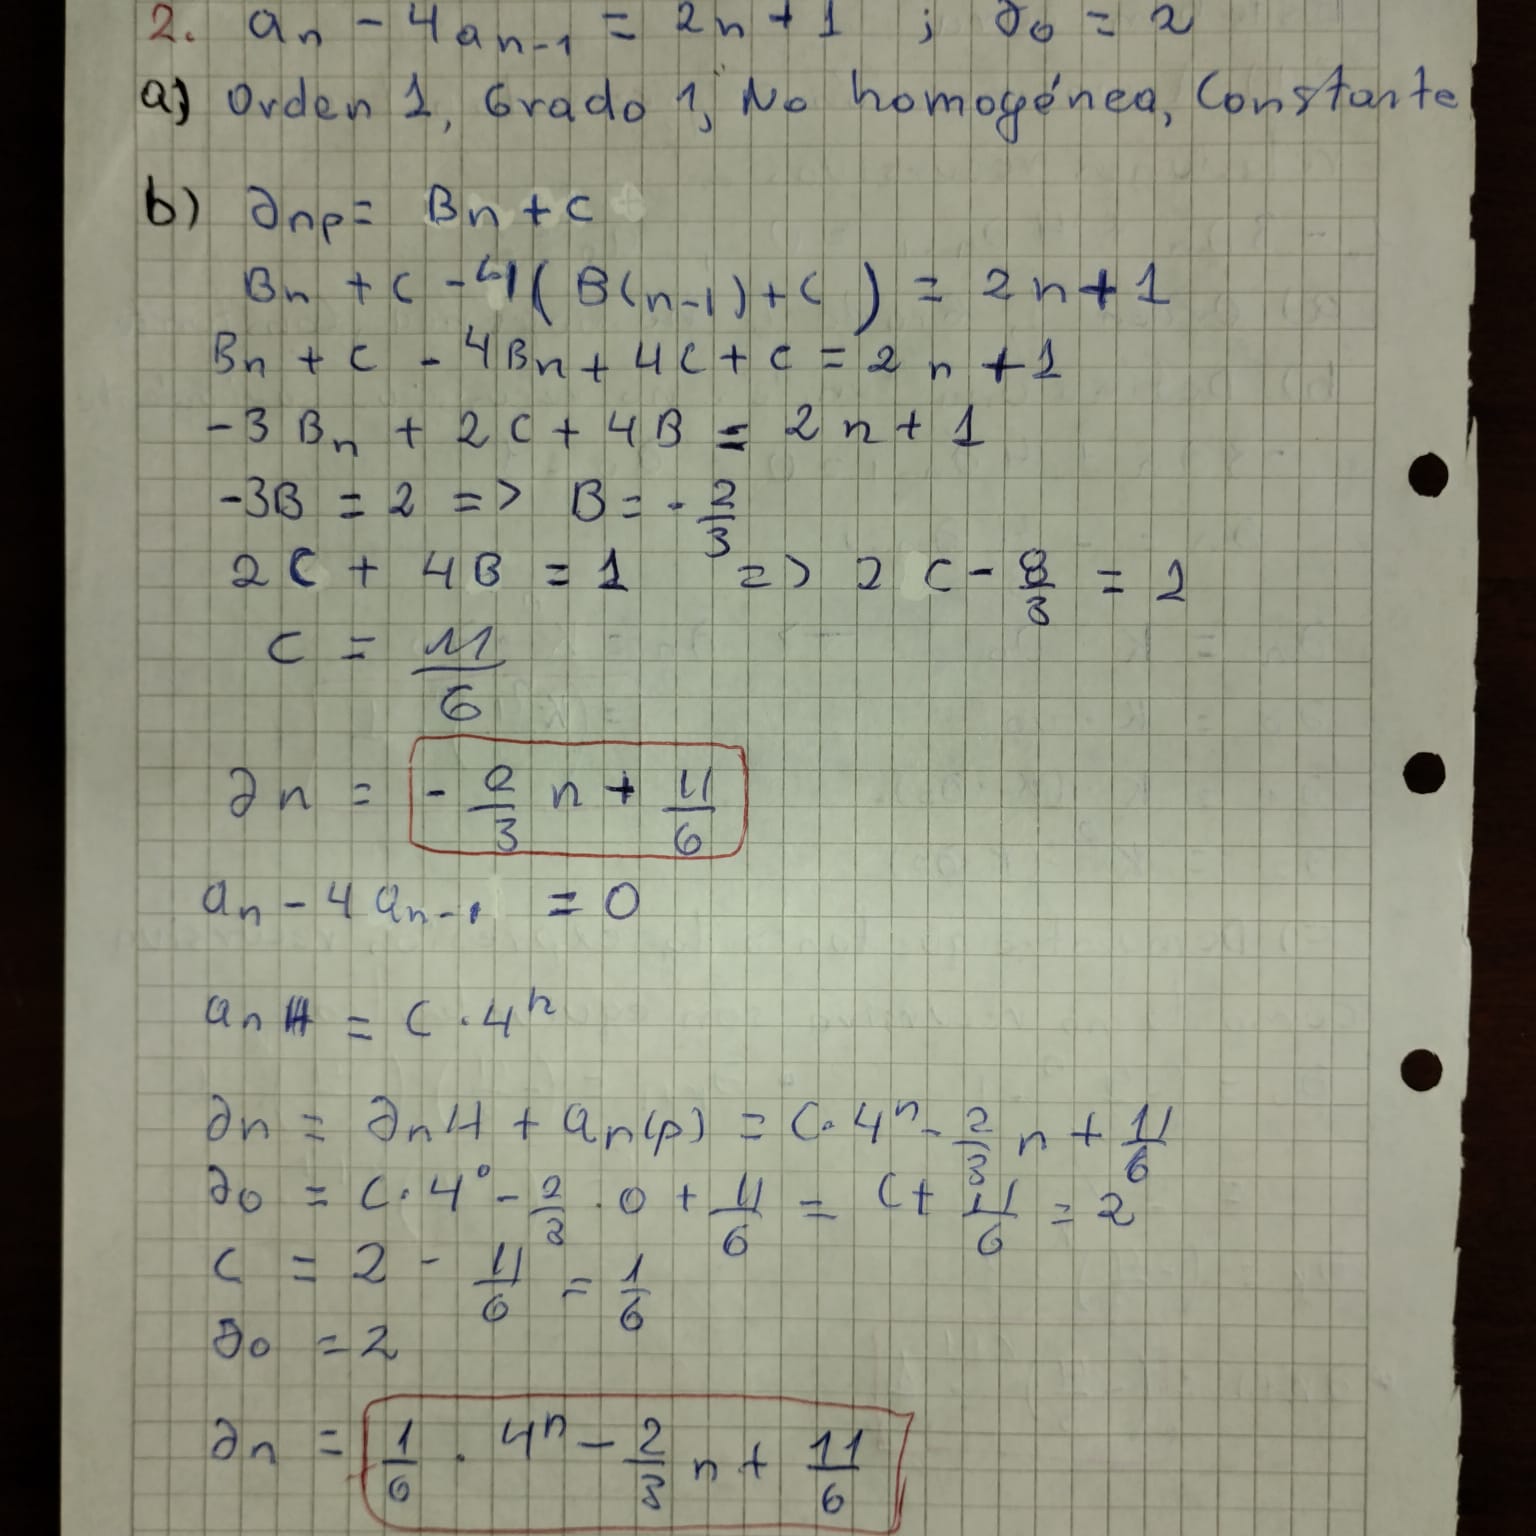 2. an - 4an-1 = 2n + 1 ; a0 = 2
a) Orden 1, Grado 1, No homogénea, Constante
b) anp = Bn + C
Bn + C - 4(B(n-1)+C) = 2n + 1
Bn + C - 4Bn + 4C + C = 2n + 1
-3Bn + 2C + 4B = 2n + 1
-3B = 2 => B = -2/3
2C + 4B = 1 => 2C - 8/3 = 1
C = 11/6
an = -2/3 n + 11/6
an - 4an-1 = 0
anH = C · 4^n
an = anH + an(p) = C · 4^n - 2/3 n + 11/6
a0 = C · 4^0 - 2/3 · 0 + 11/6 = C + 11/6 = 2
C = 2 - 11/6 = 1/6
a0 = 2
an = 1/6 · 4^n - 2/3 n + 11/6